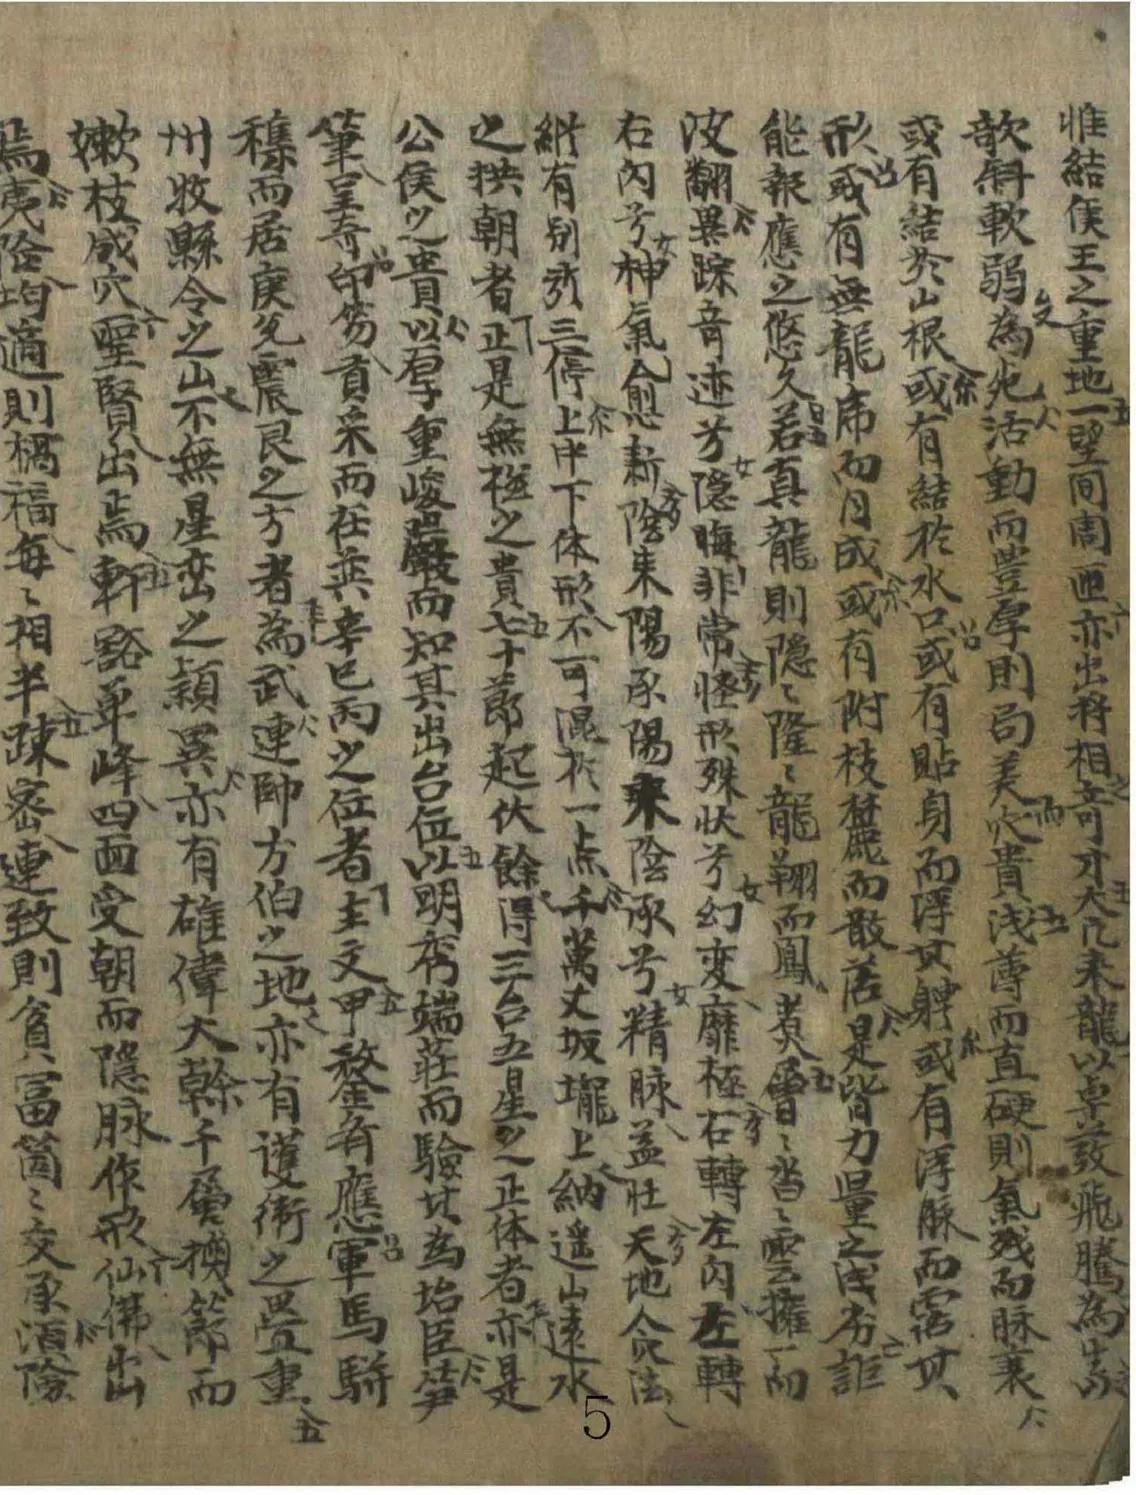 惟結侯王之重地一望间周迊亦出将相奇才大凢来龍以卓拔飛騰為生
歆斜軟弱為死活動而豊厚則局美穴貴浅薄而直硬則氣残而脉衰
或有結於山根或有結於水口或有貼身而浮其體或有浮脉而露其
形或有無龍席而月成或有附枝麓而散落是皆力量之浅劣詎
能報應之悠久若真龍則隐〻隆〻龍翔而鳳翥層〻沓〻雲擁而
波翻異踪音迹兮隠晦非常怪形殊状兮幻变靡極右轉左闪左轉
右闪兮神氣愈新陰来陽承陽来陰承兮精脉益壮天地人穴法
絶有别孜三停上中下体形不可混於一点千萬丈坂壠上納遥山遠水
之拱朝者正是無極之貴七十莭起伏餘得三台五星之正体者亦是
公侯之貴以厚重峻嚴而知其出台位以明秀端莊而驗其為治臣笋
筆呈奇印笏貢采而在巽辛巳丙之位者主文甲鍪有應軍馬騎
穕而居庚兌震艮之方者為武連帥方伯之地亦有護衛之疊重
州牧縣令之山不無星峦之穎異亦有雄偉大幹千層換節而
嫰枝成穴聖賢出焉軒豁单峰四面受朝而隠脉作形仙佛出
焉夷险均適則禍福每〻相半踈密連致則貧冨箇〻交承須險
5